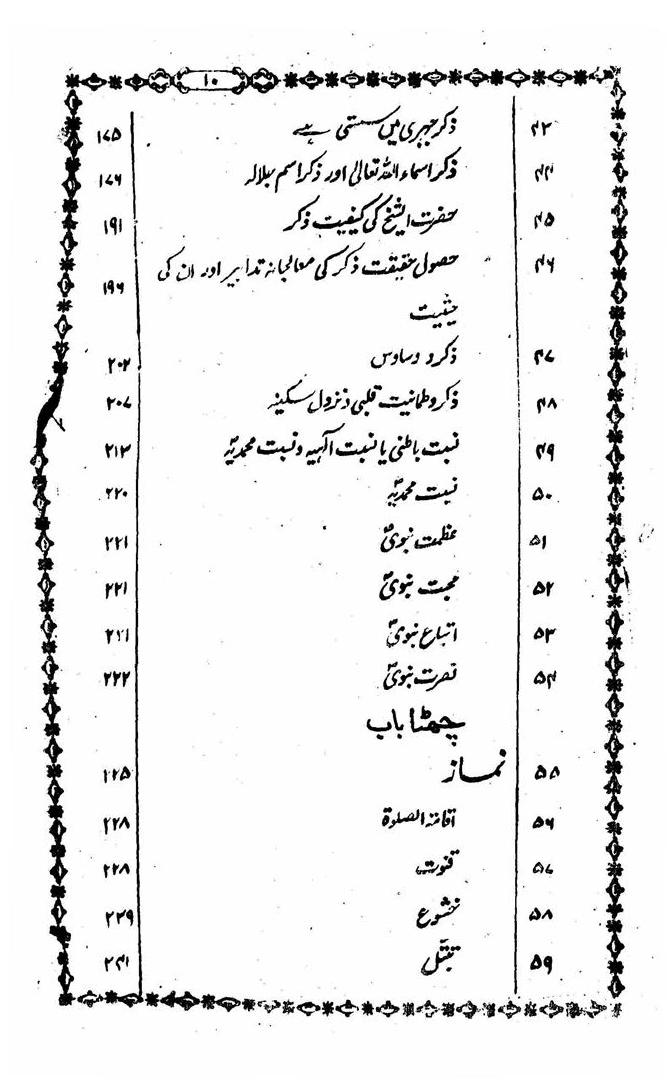 ۱۰
۴۳ ذکر جہری میں سستی ہے ۱۷۵
۴۴ ذکر اسماء اللہ تعالیٰ اور ذکر اسم جلالہ ۱۷۹
۴۵ حضرت الشیخ کی کیفیت ذکر ۱۹۱
۴۶ حصول حقیقت ذکر کی معالجانہ تدابیر اور ان کی ۱۹۶
حیثیت
۴۷ ذکر و وساوس ۲۰۲
۴۸ ذکر و طمانیت قلبی و نزول سکینہ ۲۰۷
۴۹ نسبت باطنی یا نسبت الٰہیہ و نسبت محمدیہؐ ۲۱۳
۵۰ نسبت محمدیہؐ ۲۲۰
۵۱ عظمت نبویؐ ۲۲۱
۵۲ محبت نبویؐ ۲۲۱
۵۳ اتباع نبویؐ ۲۲۱
۵۴ نصرت نبویؐ ۲۲۲
چھٹا باب
۵۵ نماز ۲۲۵
۵۶ اقامۃ الصلوۃ ۲۲۸
۵۷ قنوت ۲۲۸
۵۸ خشوع ۲۲۹
۵۹ تبتّل ۲۴۱